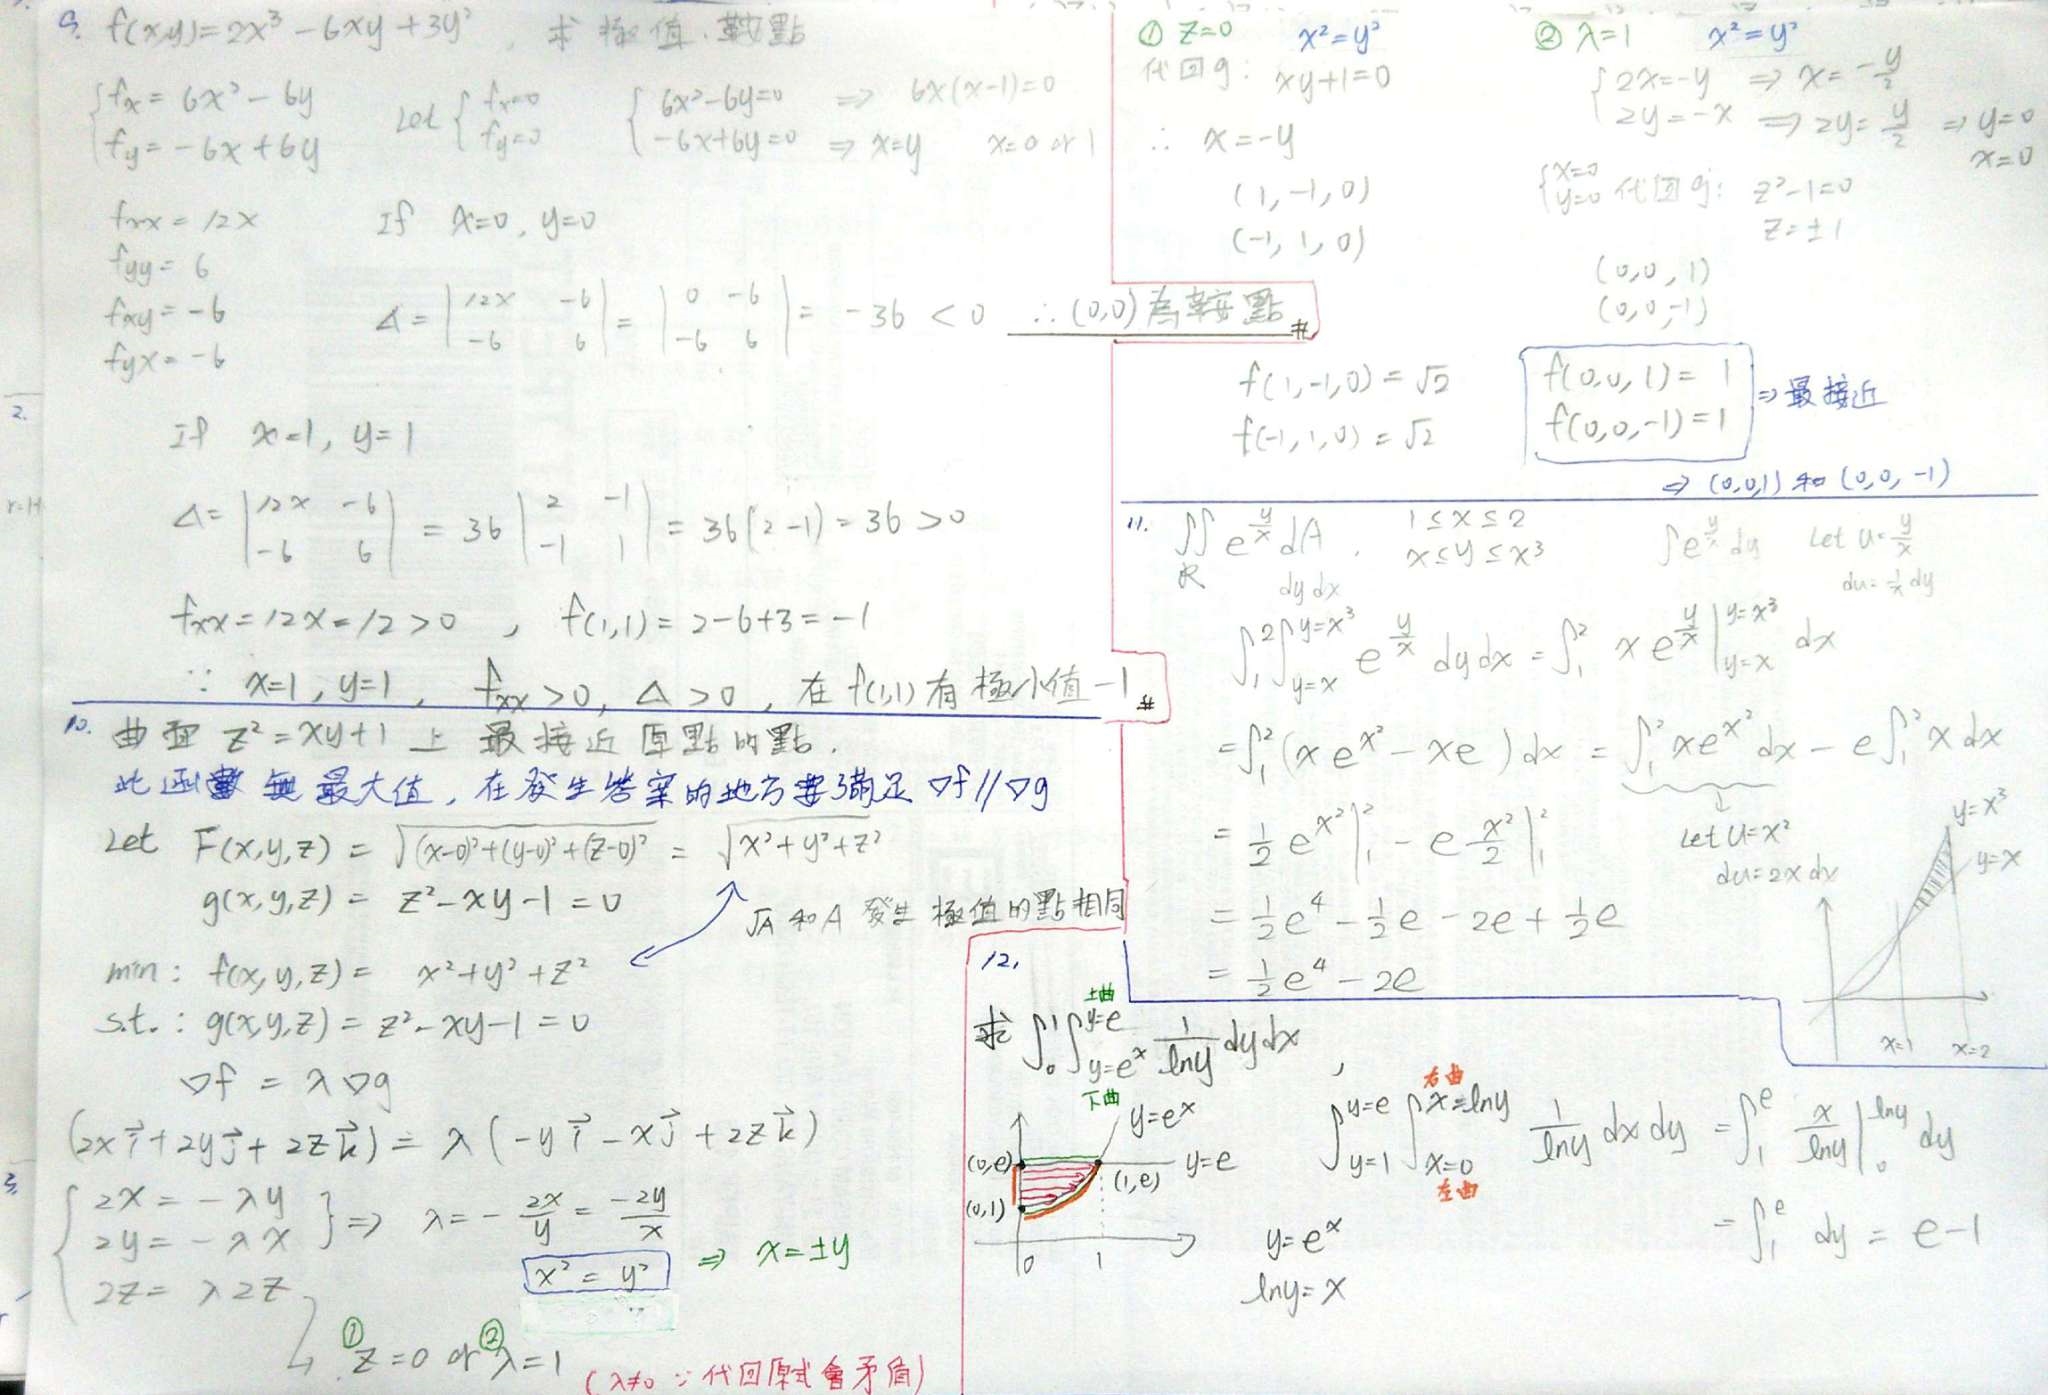 9. f(x,y)=2x³-6xy+3y², 求 極值、鞍點
{ fx = 6x²-6y
fy = -6x+6y
Let { fx=0
fy=0
{ 6x²-6y=0 ⇒ 6x(x-1)=0
-6x+6y=0 ⇒ x=y x=0 or 1
fxx = 12x
fyy = 6
fxy = -6
fyx = -6
If x=0, y=0
Δ = | 12x -6 | = | 0 -6 | = -36 < 0 ∴(0,0)為鞍點 #
| -6 6 | | -6 6 |
If x=1, y=1
Δ= | 12x -6 | = 36 | 2 -1 | = 36(2-1) = 36 >0
| -6 6 | | -1 1 |
fxx = 12x = 12 >0 , f(1,1) = 2-6+3 = -1
∵ x=1, y=1, fxx >0, Δ >0, 在 f(1,1) 有極小值 -1 #
10. 曲面 z²=xy+1 上 最接近原點的點.
此函數 無 最大值, 在發生答案的地方要滿足 ▽f//▽g
Let F(x,y,z) = √(x-0)²+(y-0)²+(z-0)² = √x²+y²+z²
g(x,y,z) = z²-xy-1=0
√A 和 A 發生 極值的點相同
min: f(x,y,z) = x²+y²+z²
s.t.: g(x,y,z) = z²-xy-1=0
▽f = λ▽g
(2x i⃗+2y j⃗+2z k⃗) = λ(-y i⃗-x j⃗+2z k⃗)
{ 2x = -λy
2y = -λx } ⇒ λ = -2x/y = -2y/x
2z = λ2z
x² = y² ⇒ x=±y
① z=0 or ② λ=1
(λ≠0 ∵ 代回原式會矛盾)
① z=0 x²=y²
代回g: xy+1=0
∴ x=-y
(1,-1,0)
(-1,1,0)
② λ=1 x²=y²
{ 2x=-y ⇒ x=-y/2
2y=-x ⇒ 2y=y/2 ⇒ y=0
x=0
{ x=0
y=0 代回g: z²-1=0
z=±1
(0,0,1)
(0,0,-1)
f(1,-1,0) = √2
f(-1,1,0) = √2
f(0,0,1) = 1
f(0,0,-1) = 1
⇒ 最接近
⇒ (0,0,1) 和 (0,0,-1)
11. ∬R e^(y/x) dA, 1≤x≤2
x≤y≤x³
dydx
∫e^(y/x) dy Let u=y/x
du=1/x dy
∫₁² ∫_{y=x}^{y=x³} e^(y/x) dydx = ∫₁² x e^(y/x) |_{y=x}^{y=x³} dx
= ∫₁² (x e^(x²) - xe) dx = ∫₁² x e^(x²) dx - e∫₁² x dx
Let u=x²
du=2x dx
= 1/2 e^(x²) |₁² - e x²/2 |₁²
= 1/2 e⁴ - 1/2 e - 2e + 1/2 e
= 1/2 e⁴ - 2e
y=x³
y=x
x=1 x=2
12.
求 ∫₀¹ ∫_{y=e^x}^{y=e} 1/lny dydx,
上曲
下曲
y=e^x
y=e
(0,e)
(1,e)
(0,1)
0 1
∫_{y=1}^{y=e} ∫_{x=0}^{x=lny} 1/lny dxdy = ∫₁^e x/lny |₀^{lny} dy
右曲
左曲
= ∫₁^e dy = e-1
y=e^x
lny=x
2.
r=1+
3.